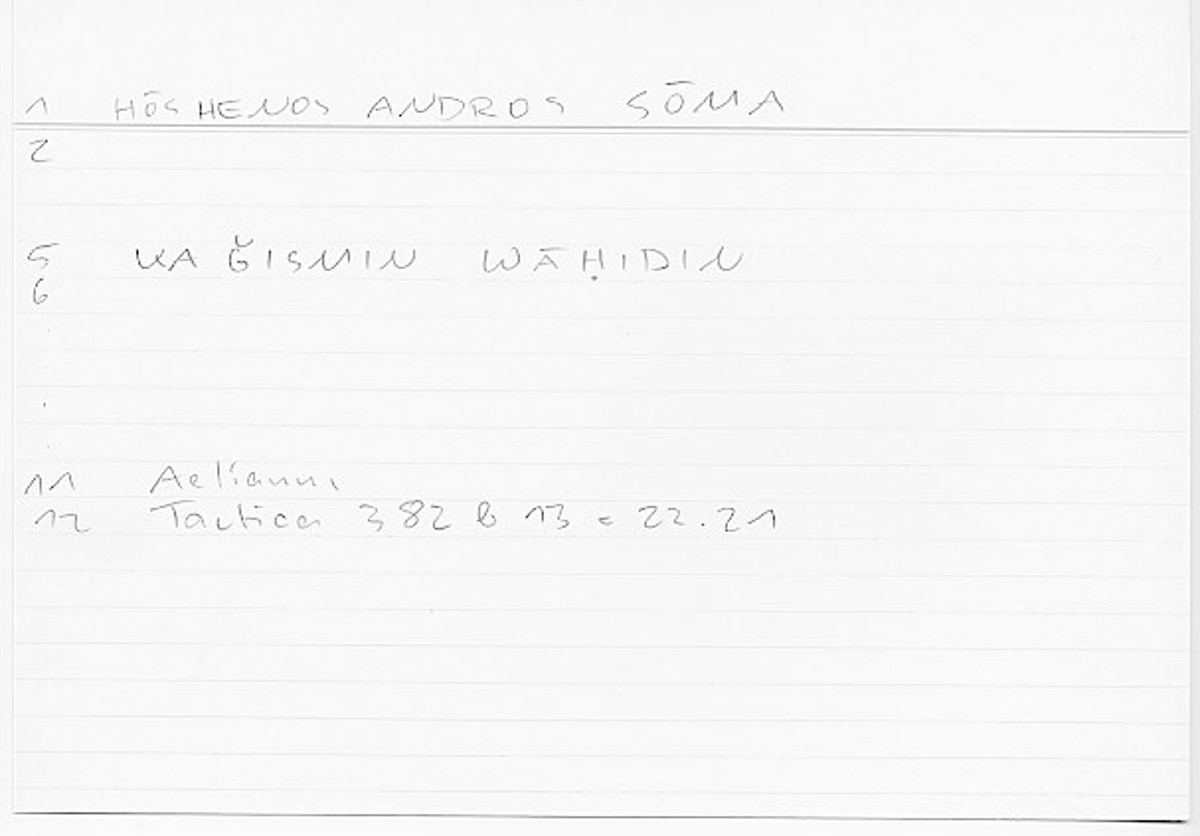 1 HŌS HENOS ANDROS SŌMA
2
5 KA ǦISMIN WĀḤIDIN
6
.
.
11 Aelianus
12 Tactica 382 b 13 = 22.21